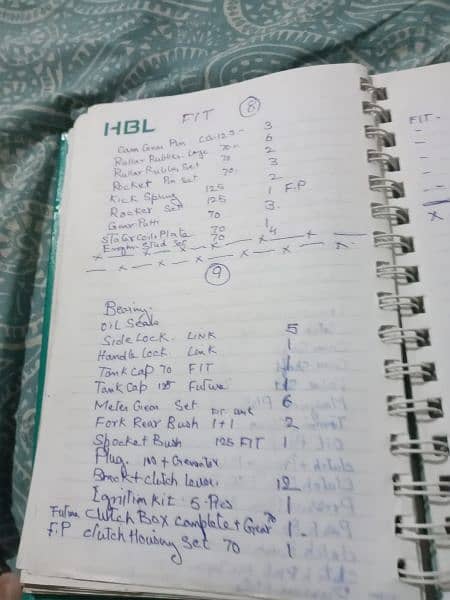 HBL FIT 8
Cam Gear Pin CG-125- 3
Rullar Rubber Large 70- 6
Rullar Rubber Set 70 2
Rocket Pin Set 70- 3
Kick Spring 125 2
Rocker Set 125 1 F.P
Gear Patti 70 3
Stator Coil Plate 70 1
Engine Stud Set 70 4
9
Bearing
Oil Seals
Side Lock. LINK 5
Handle Lock Link 1
Tank Cap 70 FIT 1
Tank Cap 125 Future 1
Meter Gear Set 6
Fork Rear Bush 1+1 2
Spocket Bush 125 FIT 1
Plug.
Break + clutch Lever. 12
Ignition kit 5-Pcs 1
Future clutch Box complete + Gear 70 1
F.P clutch Housing Set 70 1
FIT-